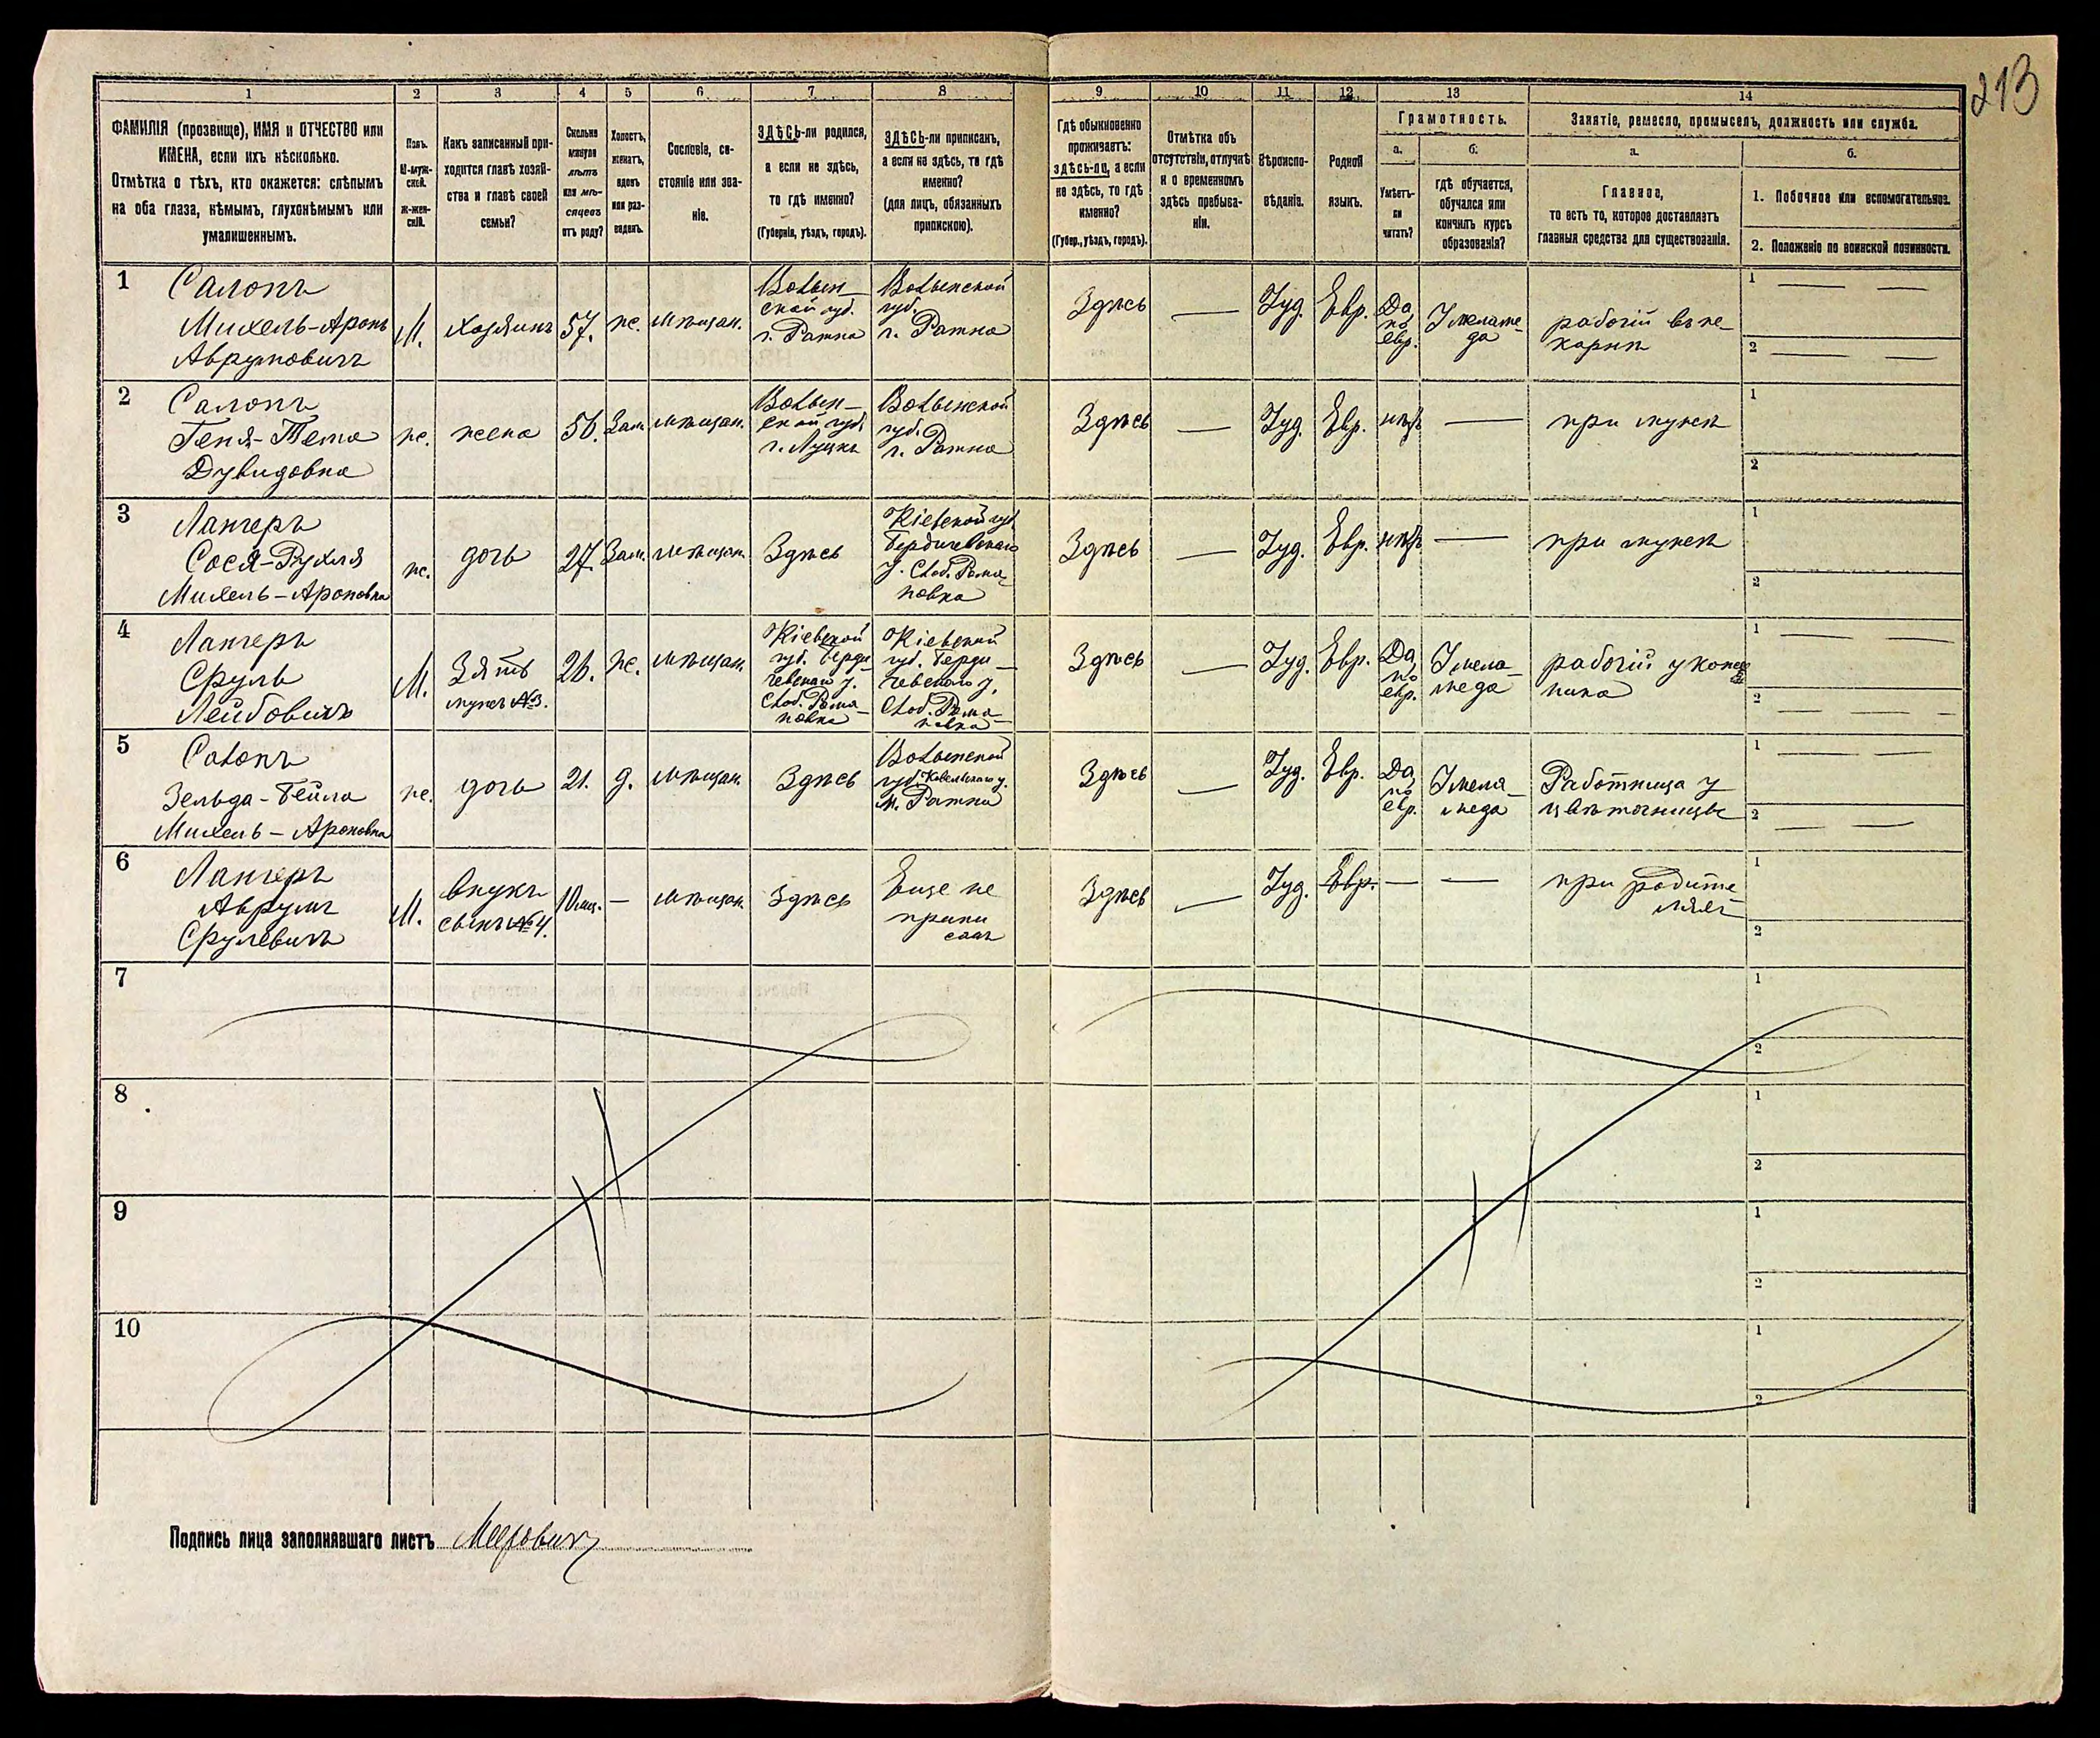 213
1 2 3 4 5 6 7 8 9 10 11 12 13 14
ФАМИЛІЯ (прозвище), ИМЯ и ОТЧЕСТВО или
ИМЕНА, если ихъ нѣсколько.
Отмѣтка о тѣхъ, кто окажется: слѣпымъ
на оба глаза, нѣмымъ, глухонѣмымъ или
умалишеннымъ.
Полъ.
М-муж-
ской.
ж-жен-
скій.
Какъ записанный при-
ходится главѣ хозяй-
ства и главѣ своей
семьи?
Сколько
минуло
лѣтъ
или мѣ-
сяцевъ
отъ роду?
Холостъ,
женатъ,
вдовъ
или раз-
веденъ.
Сословіе, со-
стояніе или зва-
ніе.
ЗДѢСЬ-ли родился,
а если не здѣсь,
то гдѣ именно?
(Губернія, уѣздъ, городъ).
ЗДѢСЬ-ли приписанъ,
а если не здѣсь, то гдѣ
именно?
(для лицъ, обязанныхъ
припискою).
Гдѣ обыкновенно
проживаетъ:
здѣсь-ли, а если
не здѣсь, то гдѣ
именно?
(Губер., уѣздъ, городъ).
Отмѣтка объ
отсутствіи, отлучкѣ
и о временномъ
здѣсь пребыва-
ніи.
Вѣроиспо-
вѣданіе.
Родной
языкъ.
Грамотность.
а.
Умѣетъ-
ли
читать?
б.
гдѣ обучается,
обучался или
кончилъ курсъ
образованія?
Занятіе, ремесло, промыселъ, должность или служба.
а.
Главное,
то есть то, которое доставляетъ
главныя средства для существованія.
б.
1. Побочное или вспомогательное.
2. Положеніе по воинской повинности.
1
Салонъ
Михель-Аронъ
Аврумовичъ
М.
хозяинъ
57.
же.
мѣщан.
Волын-
ской губ.
г. Ратна
Волынской
губ.
г. Ратна
Здѣсь
Іуд.
Евр.
Да,
по
евр.
У меламе-
да
рабочій въ пе-
карнѣ
1
2
2
Салонъ
Геня-Тема
Дувидовна
же.
жена
56.
Зам.
мѣщан.
Волын-
ской губ.
г. Луцкъ
Волынской
губ.
г. Ратна
Здѣсь
Іуд.
Евр.
нѣтъ
при мужѣ
1
2
3
Лангеръ
Сося-Рухля
Михель-Ароновна
же.
дочь
27.
Зам.
мѣщан.
Здѣсь
Кіевской губ.
Бердичевскаго
у. Слоб. Рома-
новка
Здѣсь
Іуд.
Евр.
нѣтъ
при мужѣ
1
2
4
Лангеръ
Сруль
Лейбовичъ
М.
Зять
мужъ №3.
26.
же.
мѣщан.
Кіевской
губ. Берди
чевскаго у.
Слоб. Рома-
новка
Кіевской
губ. Берди-
чевскаго у.
Слоб. Рома-
новка
Здѣсь
Іуд.
Евр.
Да,
по
евр.
У мела-
меда
1
2
5
Салонъ
Зельда-Бейла
Михель-Ароновна
же.
дочь
21.
д.
мѣщан.
Здѣсь
Волынской
губ. Ковельскаго у.
м. Ратна
Здѣсь
Іуд.
Евр.
Да,
по
евр.
У мела-
меда
Работница у
цвѣточницы
1
2
6
Лангеръ
Аврумъ
Срулевичъ
М.
внукъ
сынъ №4.
10 мц.
мѣщан.
Здѣсь
Еще не
припи
санъ
Здѣсь
Іуд.
Евр.
при родите
ляхъ
1
2
7
1
2
8
1
2
9
1
2
10
1
2
Подпись лица заполнявшаго листъ Мееровичъ